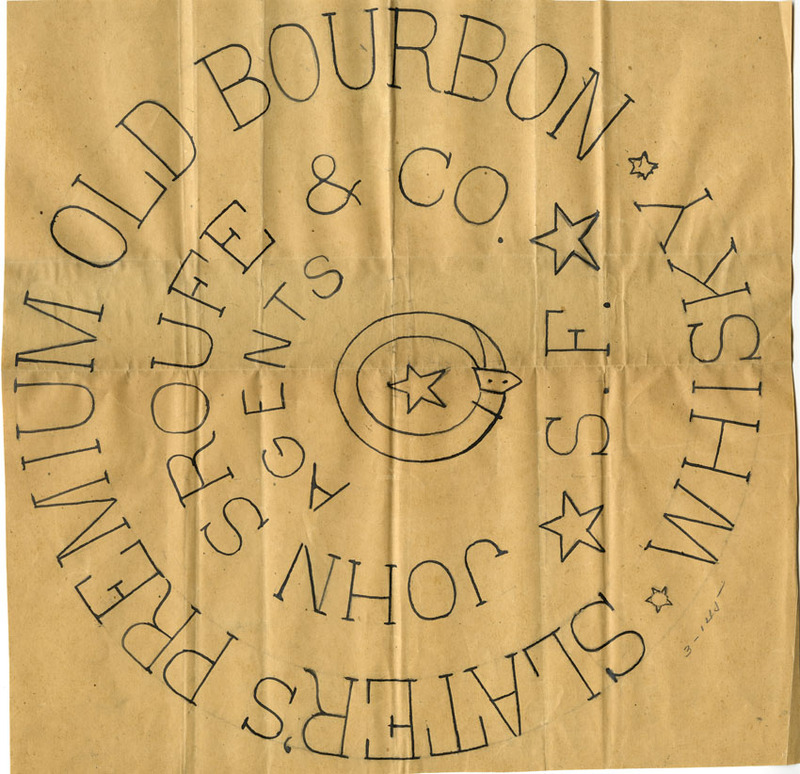 SLATER'S PREMIUM OLD BOURBON
WHISKY
JOHN SROUFE & CO.
S.F.
AGENTS